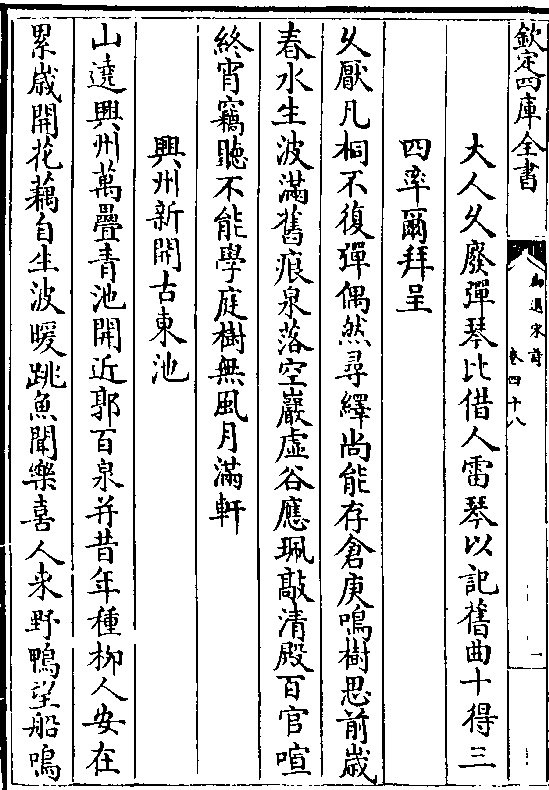 欽定四庫全書
御選宋詩
卷四十八
一
大人乆廢彈琴比借人雷琴以記舊曲十得三
四率爾拜呈
乆厭凡桐不復彈偶然尋繹尚能存倉庚鳴樹思前歳
春水生波滿舊痕泉落空巖虛谷應珮敲清殿百官喧
終宵竊聽不能學庭樹無風月滿軒
興州新開古東池
山遶興州萬疊青池開近郭百泉并昔年種柳人安在
累歳開花藕自生波暖跳魚聞樂喜人来野鴨望船鳴